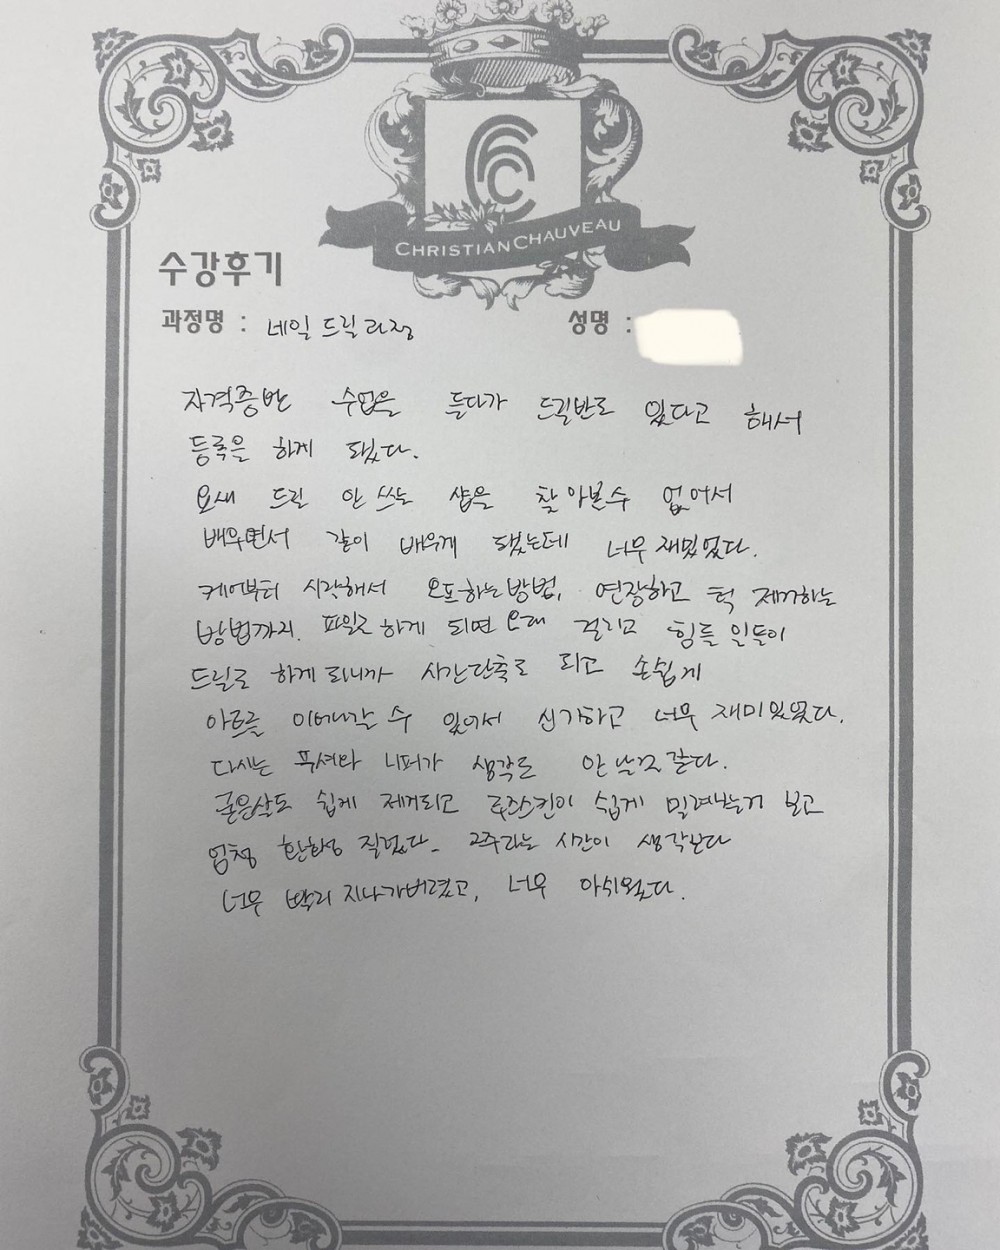 CHRISTIAN CHAUVEAU
수강후기
과정명 : 네일 드릴 과정
성명 :
자격증반 수업을 듣다가 드릴반도 있다고 해서
등록을 하게 됐다.
요새 드릴 안 쓰는 샵을 찾아볼수 없어서
배우면서 같이 배우게 됐는데 너무 재밌었다.
케어부터 시작해서 오프하는 방법, 연장하고 턱 제거하는
방법까지. 파일로 하게 되면 오래 걸리고 힘들 일들이
드릴로 하게 되니까 시간단축도 되고 손쉽게
아트를 이어나갈 수 있어서 신기하고 너무 재미있었다.
다시는 푸셔와 니퍼가 생각도 안 날것 같다.
굳은살도 쉽게 제거되고 루즈스킨이 쉽게 밀려나는거 보고
엄청 환호성 질렀다. 2주라는 시간이 생각보다
너무 빨리 지나가버렸고, 너무 아쉬웠다.